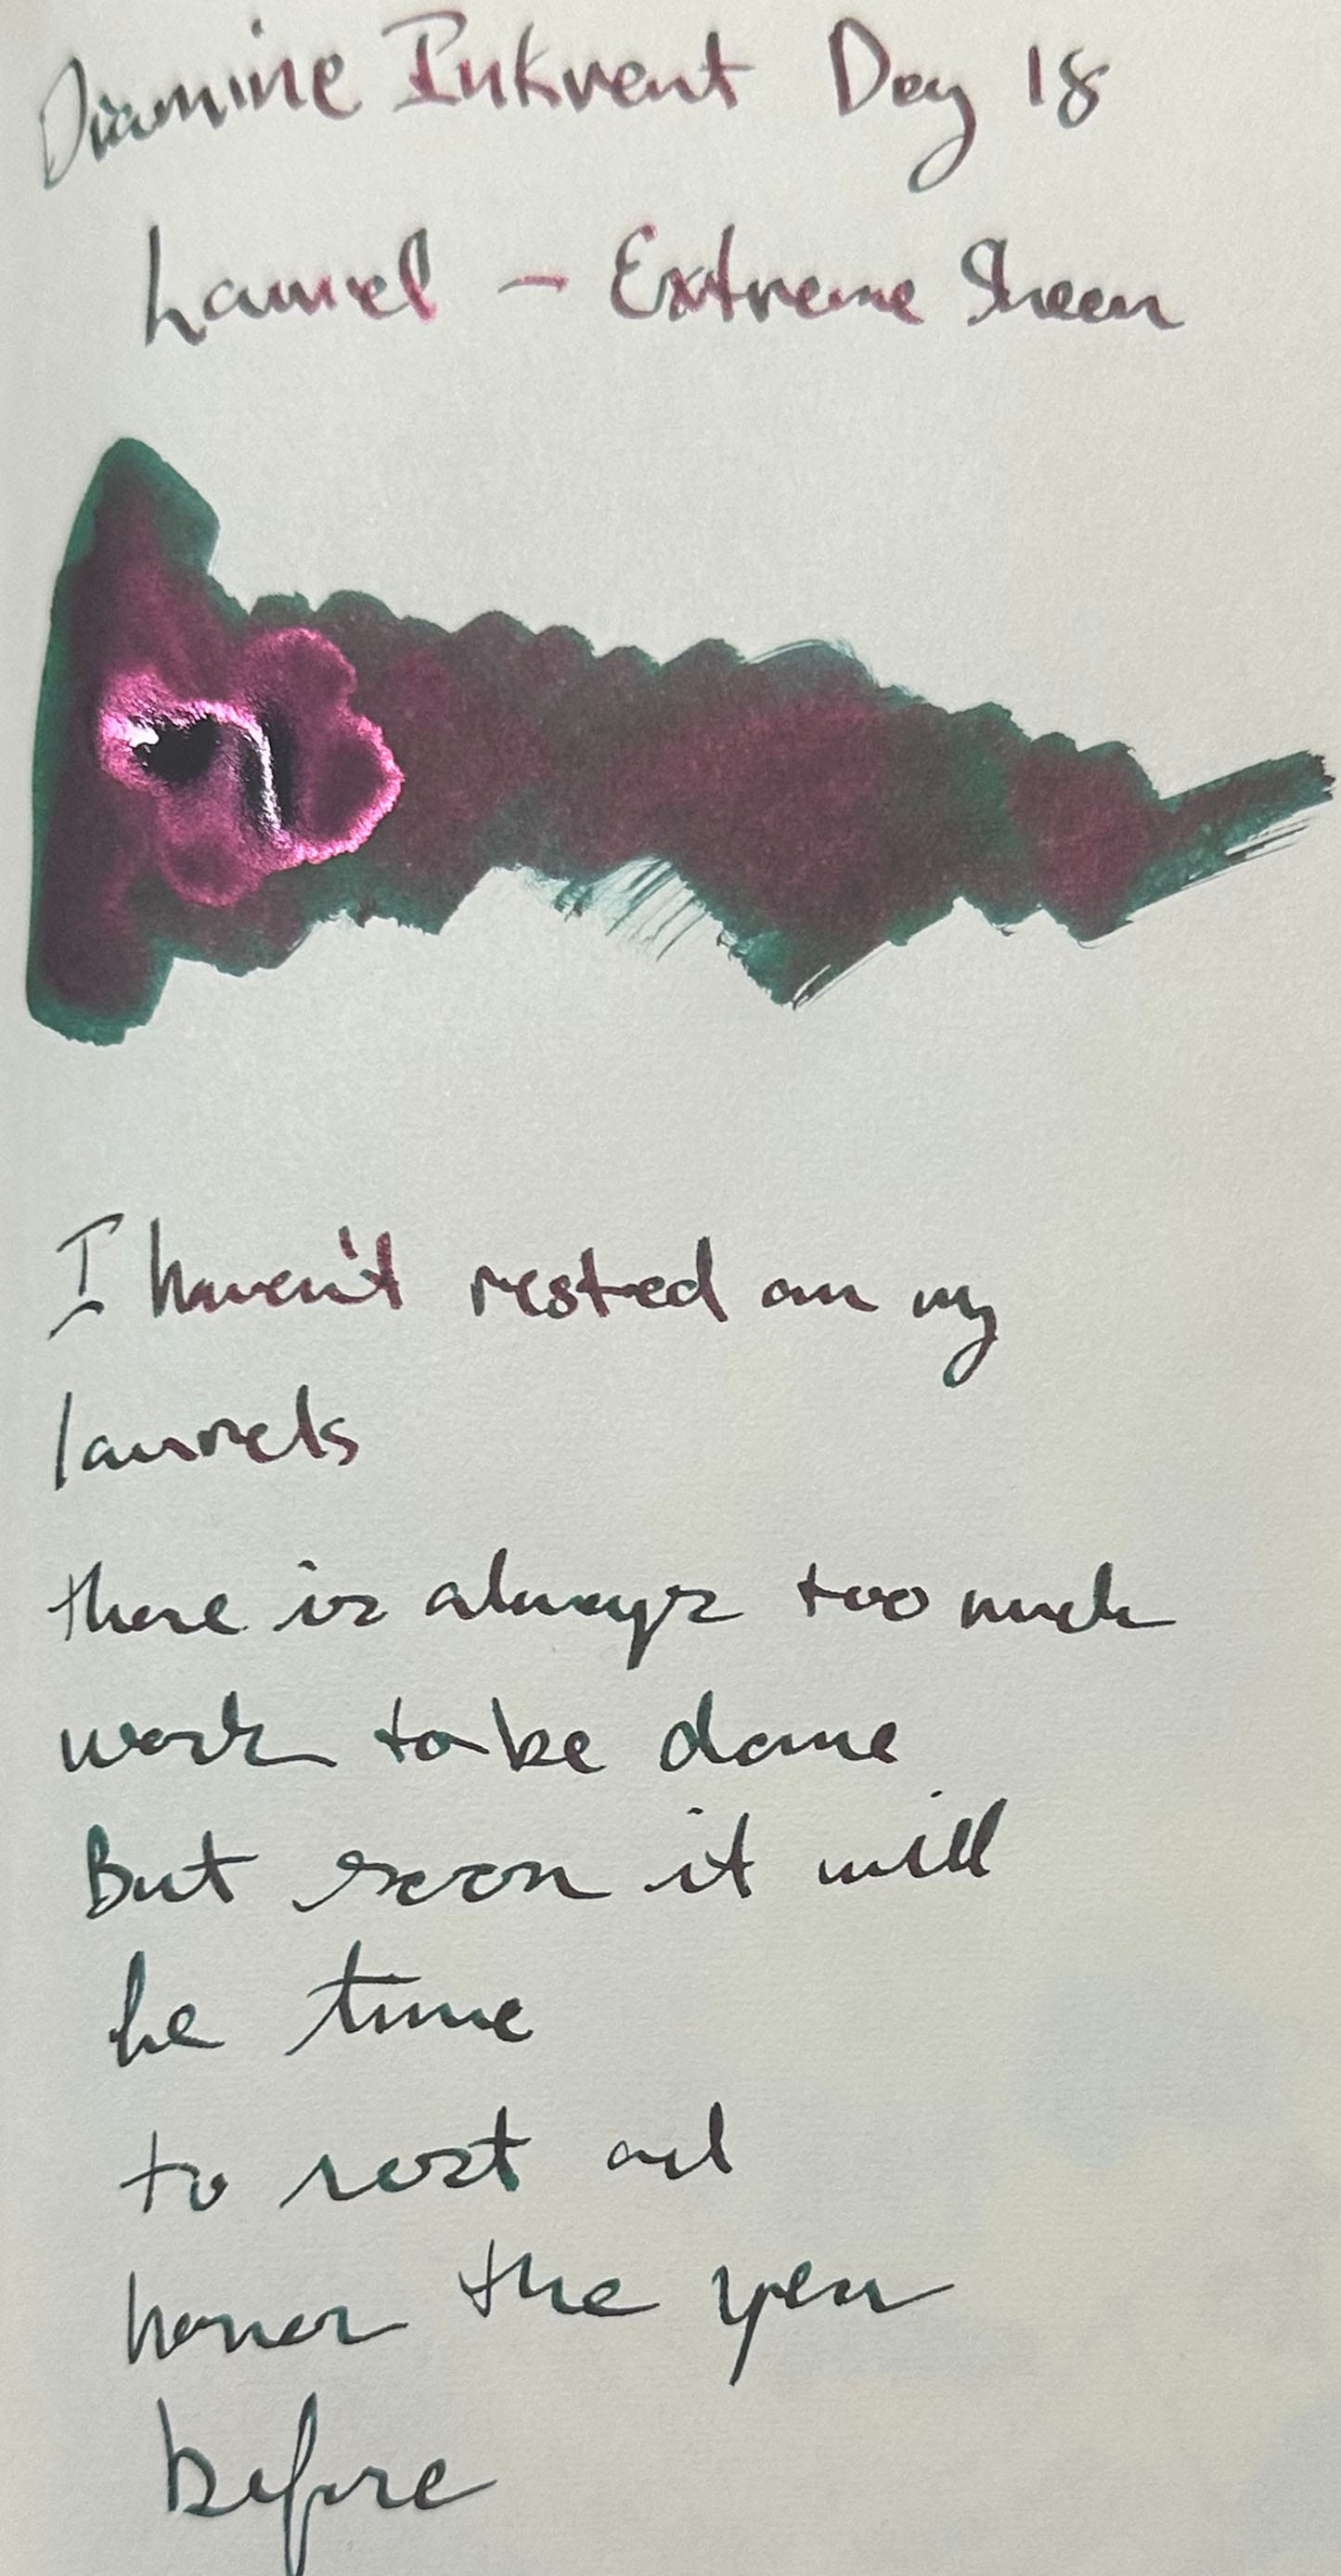 Diamine Inkvent Day 18
Laurel - Extreme Sheen
I haven't rested on my
laurels
there is always too much
work to be done
But soon it will
be time
to rest and
honor the year
before